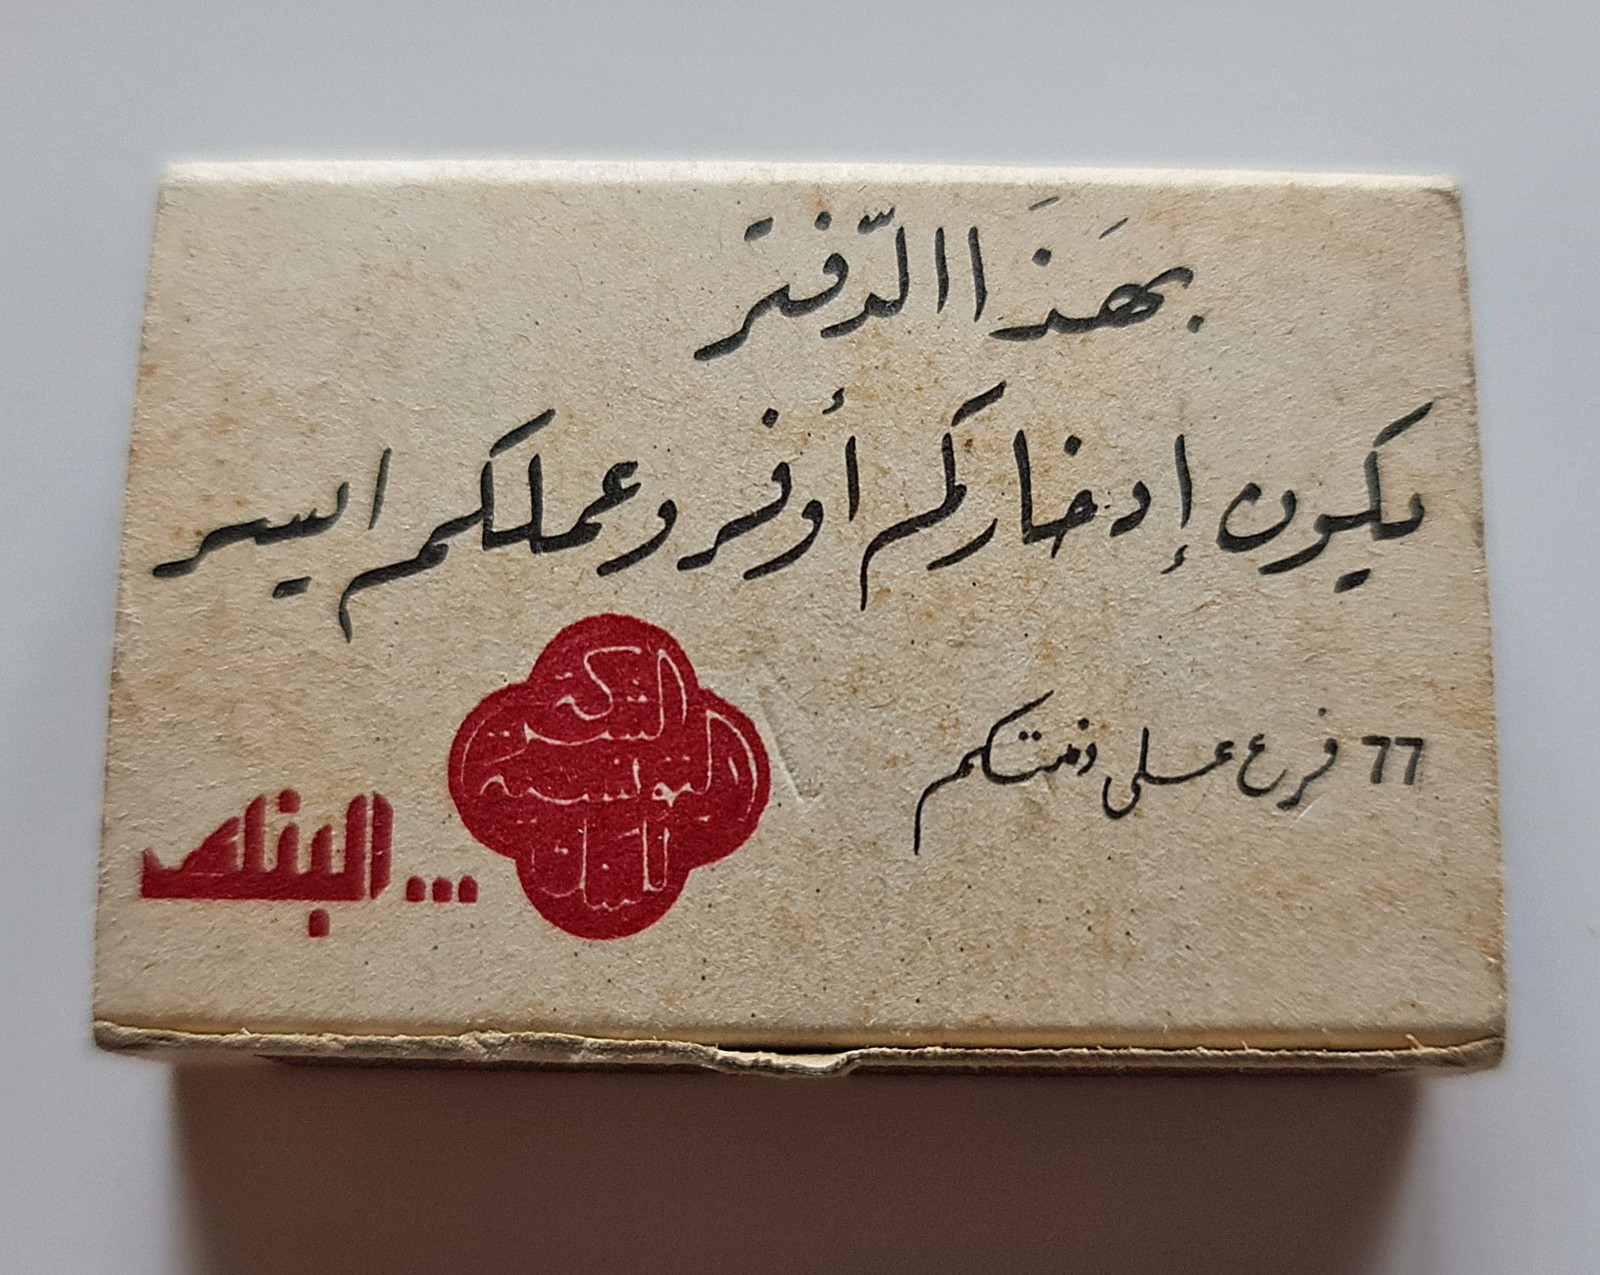 بهَذَا الدّفتر
يكون إدخاركم أوفر وعملكم ايسر
77 فرع على ذمتكم
الشركة
التونسية
للبنك
... البنك